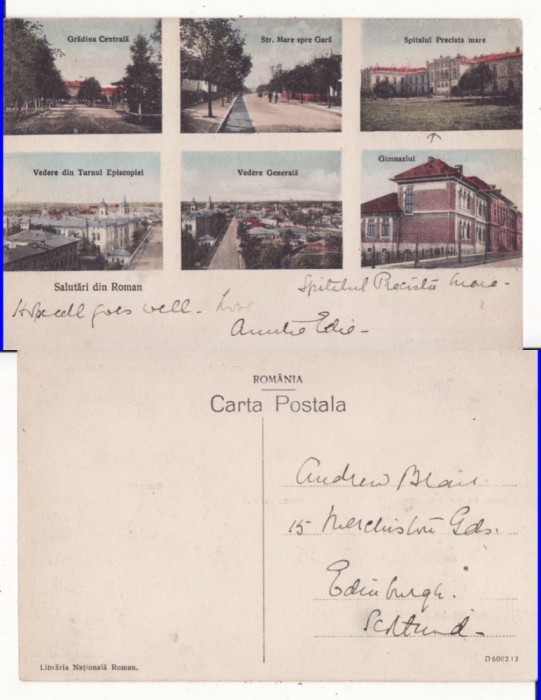 Grădina Centrală
Str. Mare spre Gară
Spitalul Precista mare
Vedere din Turnul Episcopiei
Vedere Generală
Gimnaziul
Salutări din Roman
Spitalul Precista mare -
Hope all goes well - Love
Auntie Edie -
ROMÂNIA
Carta Postala
Andrew Blair.
15 Merchiston Gds.
Edinburgh.
Scotland -
Librăria Națională Roman.
D 600212